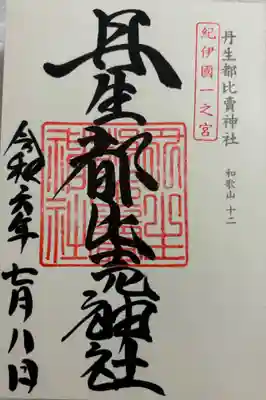 丹生都比売神社
和歌山 十二
紀伊國一之宮
丹生都比売神社
令和六年七月八日